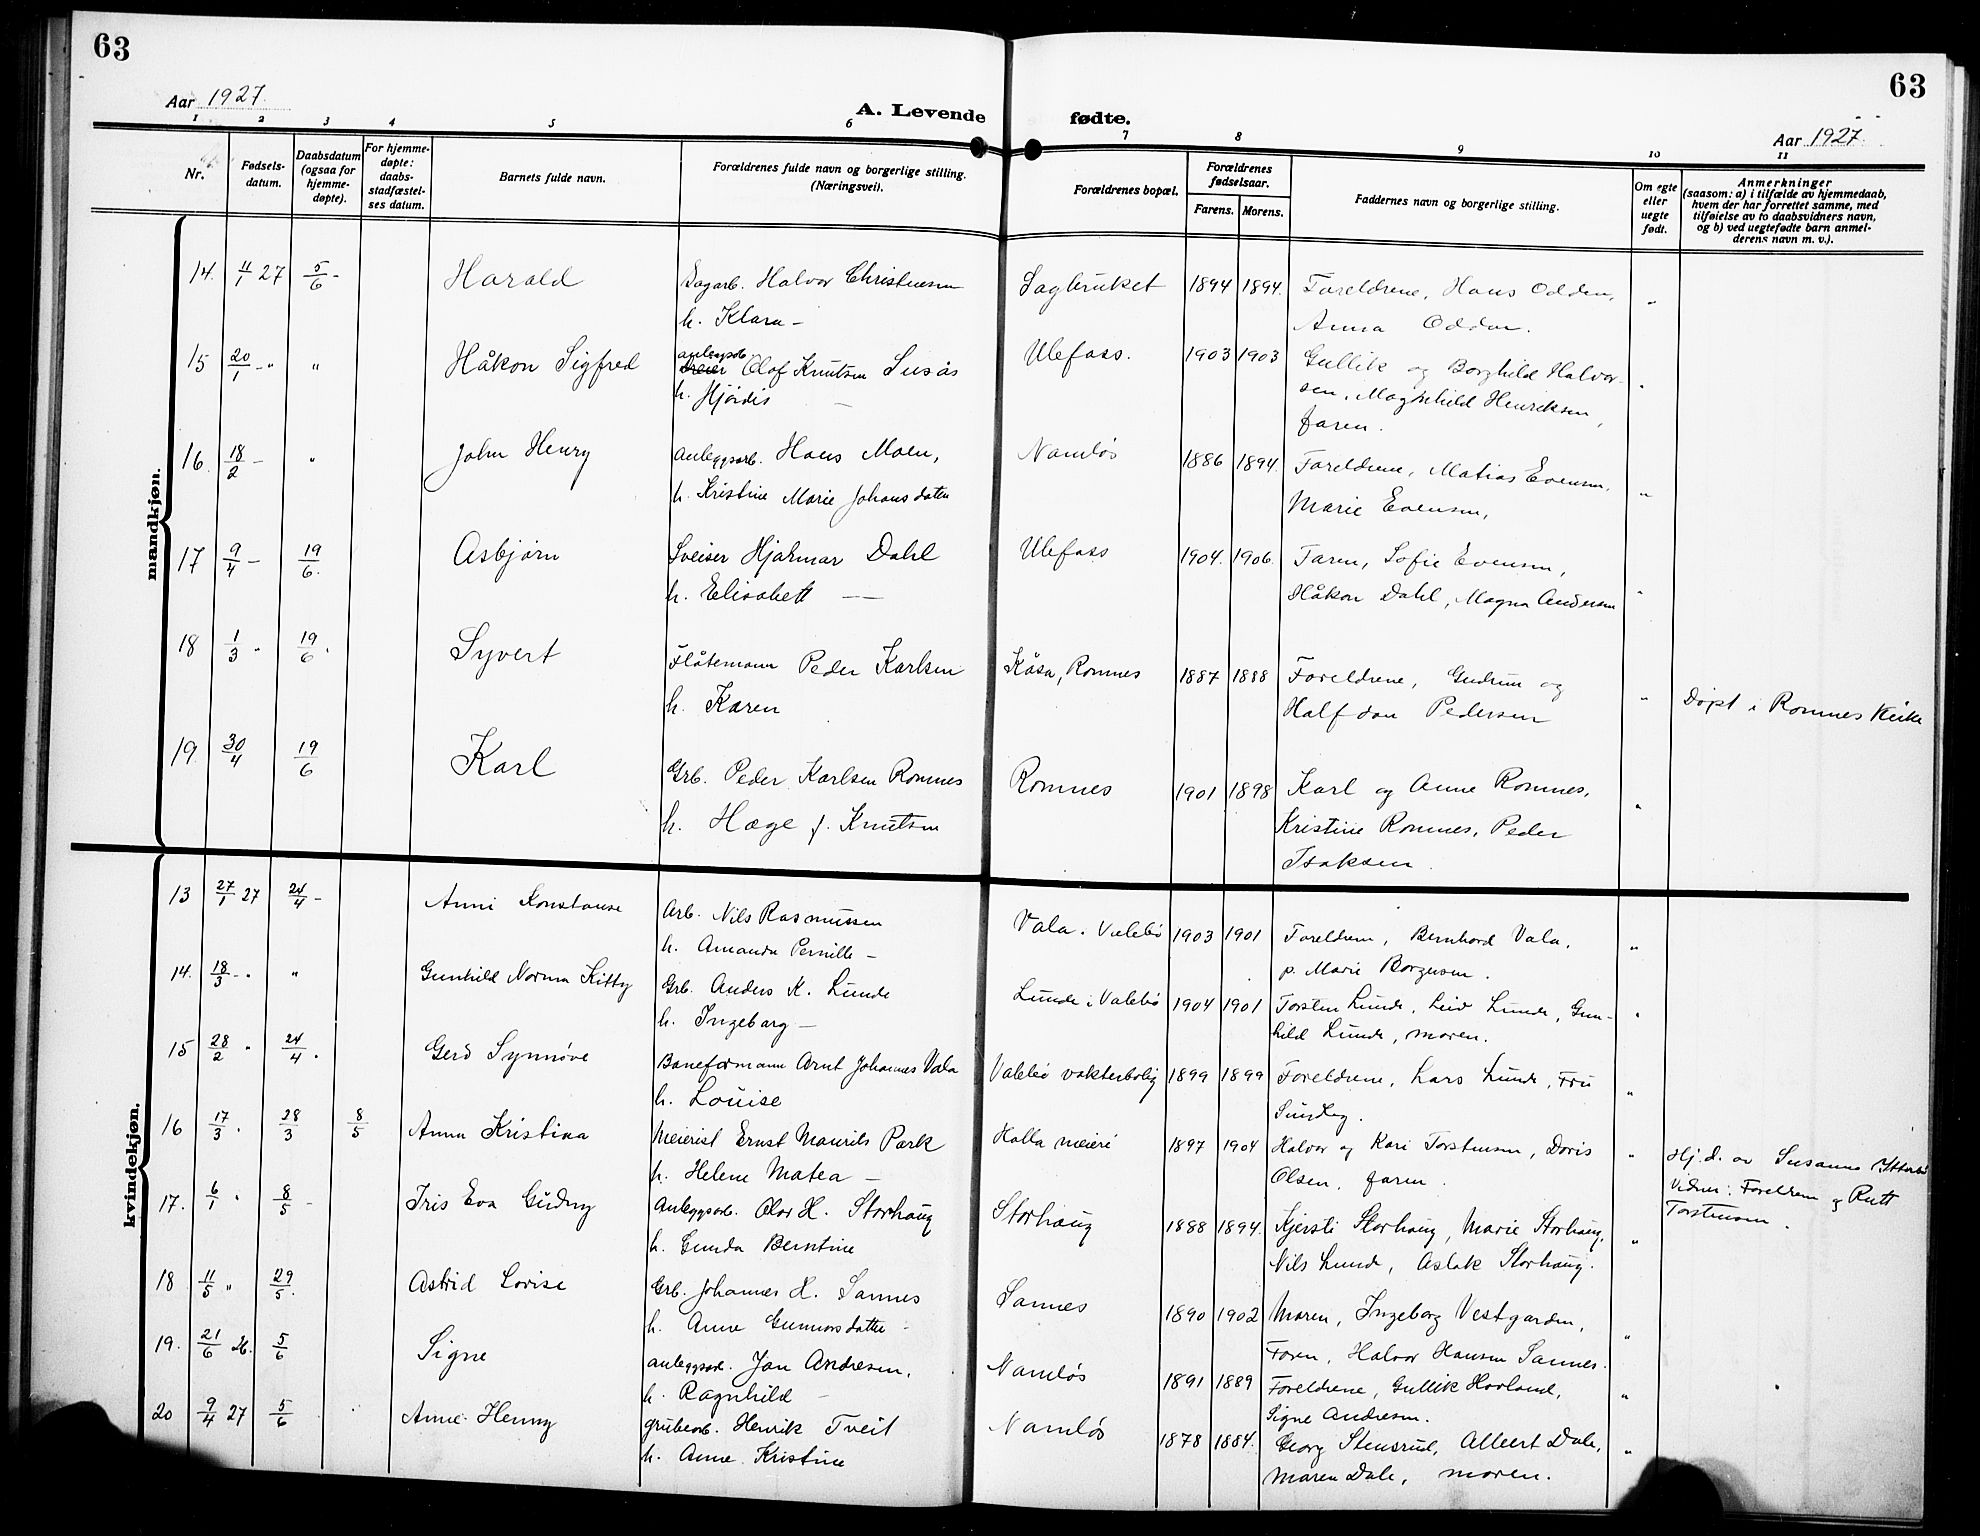 63
63
Aar 1927.
A. Levende fødte.
Aar 1927.
1 2 3 4 5 6 7 8 9 10 11
Nr.
Fødsels-
datum.
Daabsdatum
(ogsaa for
hjemme-
døpte).
For hjemme-
døpte:
daabs-
stadfæstel-
ses datum.
Barnets fulde navn.
Forældrenes fulde navn og borgerlige stilling.
(Næringsvei).
Forældrenes bopæl.
Forældrenes
fødselsaar.
Farens. Morens.
Faddernes navn og borgerlige stilling.
Om egte
eller
uegte
født.
Anmerkninger
(saasom: a) i tilfælde av hjemmedaab,
hvem der har forrettet samme, med
tilføielse av to daabsvidners navn,
og b) ved uegtefødte barn anmel-
derens navn m. v.).
mandkjøn.
14. 11/1 27 5/6 - Harald Sagarb. Halvor Christensen Sagbruket 1894 1894. Foreldrene, Hans Odden, "
h. Klara - Anna Odden.
15 20/1 - " " Håkon Sigfred anleggsarb. Olaf Knutsen Susås Ulefoss. 1903 1903 Gullik og Borghild Halvor- "
h. Hjördis - sen, Maghild Henriksen,
faren.
16. 18/2 - " John Henry Anleggsarb. Hans Moen, Namløs 1886 1894. Foreldrene, Matias Evensen, "
h. Kristine Marie Johansdatter Marie Evensen,
17 9/4 - 19/6. Asbjørn Sveiser Hjalmar Dahl Ulefoss 1904. 1906. Faren, Sofie Evensen, "
h. Elisabett - Håkon Dahl, Magna Andersen
18 1/3 " 19/6. Syvert Flåtemann Peder Karlsen Kåsa, Romnes 1887 1888 Foreldrene, Gudrun og "
h. Karen Halfdan Pedersen Døpt i Romnes Kirke
19. 30/4 19/6 Karl Grb. Peder Karlsen Romnes Romnes 1901 1898 Karl og Anne Romnes, "
h. Hæge f. Knutsen Kristine Romnes, Peder
Isaksen.
kvindekjøn.
13 27/1 27 24/4 - Anni Konstanse Arb. Nils Rasmussen Vala. Valebø 1903 1901 Foreldrene, Bernhard Vala, "
h. Amanda Pernille - p. Marie Borgersen.
14. 18/3 - " " Gunhild Norma Kitty Grb. Anders K. Lunde Lunde i Valebø 1904 1901 Torsten Lunde, Leiv Lunde, Gun- "
h. Ingeborg - hild Lunde, moren.
15 28/2 " 24/4. Gerd Synnøve Baneformann Arnt Johannes Vala Valebø vokterbolig 1899 1899 Foreldrene, Lars Lunde, Fru "
h. Louise
16 17/3 " 28/3 8/5 Anna Kristina Meierist Ernst Maurits Park Holla meieri 1897 1904 Halvor og Kari Torstensen, Doris "
h. Helene Matea - Olsen, faren. Hj.d. av Susanne
Vidner: Foreldrene og Rutt
Torstensen.
17. 6/1 " 8/5 - Iris Eva Gudny Anleggsarb. Olav H. Storhaug Storhaug 1888 1894. Kjersti Storhaug, Marie Storhaug, "
h. Gunda Berntine Nils Lunde, Aslak Storhaug.
18 11/5 " 29/5. Astrid Lovise Grb. Johannes H. Sannes Sannes 1890 1902 Moren, Ingeborg Vestgarden, "
h. Anne Gunnarsdatter - Faren, Halvor Hansen Sannes.
19. 21/6 26. 5/6 Signe anleggsarb. Jon Andresen, Namløs 1891 1889 Foreldrene, Gullik Hovland, "
h. Ragnhild - Signe Andresen.
20 9/4 27 5/6 Anne Henny grubearb. Henrik Tveit Namløs 1878 1884. Georg Stensrud, Albert Dale, "
h. Anne Kristine Maren Dale, moren.